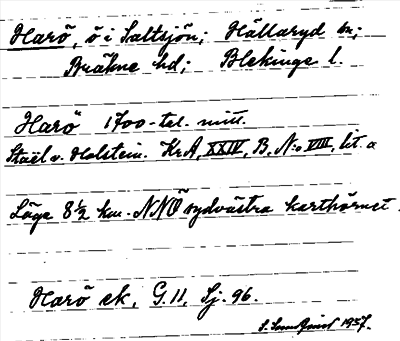 Harö, ö i Saltsjön; Hällaryd sn;
Bräkne hd; Blekinge l.
Harö 1700-tel. mitt.
Staël v. Holstein. KrA, XXIV, B. No VIII, lit. a
Läge 8 ½ km. NNÖ sydvästra karthörnet.
Harö ek. G. 11, Sj. 96.
S. Sundquist 1957.